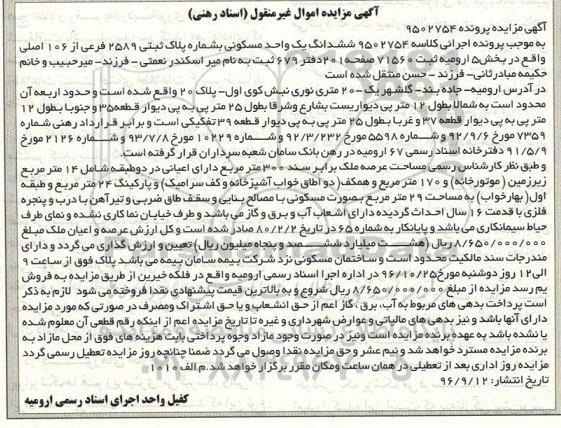 آگهی مزایده اموال غیرمنقول (اسناد رهنی)
آگهی مزایده پرونده ۹۵۰۲۷۵۴
به موجب پرونده اجرائی کلاسه ۹۵۰۲۷۵۴ ششدانگ یک واحد مسکونی بشماره پلاک ثبتی ۲۵۸۹ فرعی از ۱۰۶ اصلی
واقع در بخش۵ ارومیه ثبت ۷۱۵۶۰ صفحه۲۰۱ دفتر ۶۷۹ ثبت به نام میر اسکندر نعمتی - فرزند - میرحبیب و خانم
حکیمه صادرثانی- فرزند - حسن منتقل شده است
در آدرس ارومیه- جاده بند- گلشهر یک -۲۰ متری نوری نبش کوی اول- پلاک ۲۰ واقع شده است و حدود اربعه آن
محدود است به شمالا بطول ۱۲ متر پی دیواریست بشارع وشرقا بطول ۲۵ متر پی به پی دیوار قطعه۳۵ و جنوبا بطول ۱۲
متر پی به پی دیوار قطعه ۳۷ و غربا بطول ۲۵ متر پی به پی دیوار قطعه ۳۹ تفکیکی است و برابر قرارداد رهنی شماره
۷۳۵۹ مورخ ۹۲/۹/۶ و شماره ۵۵۹۸ مورخ ۹۲/۳/۲۳۲ و شماره ۱۰۲۲۹ مورخ ۹۳/۷/۸ و شماره ۲۱۲۶ مورخ
۹۱/۵/۹ دفترخانه اسناد رسمی ۶۷ ارومیه در رهن بانک سامان شعبه سرداران قرار گرفته است.
و طبق نظر کارشناس رسمی مساحت عرصه ملک برابر سند ۳۰۰ متر مربع دارای اعیانی در دوطبقه شامل ۱۴ متر مربع
زیرزمین (موتورخانه) و ۱۷۰ متر مربع و همکف (دو اطاق خواب آشپزخانه و کف سرامیک) و پارکینگ ۲۴ متر مربع و طبقه
اول( بهارخواب) به مساحت ۲۹ متر مربع بصورت مسکونی با مصالح بنایی و سقف طاق ضربی و تیرآهن با درب و پنجره
فلزی با قدمت ۱۶ سال احداث گردیده دارای انشعاب آب و برق و گاز می باشد و طرف خیابان نماکاری نشده و نمای طرف
حیاط سیمانکاری می باشد و پایانکار به شماره ۶۵ در تاریخ ۸۰/۲/۲ صادر شده است و کل ارزش عرصه و اعیان ملک مبلغ
۸/۶۵۰/۰۰۰/۰۰۰ ریال (هشت میلیارد ششصد و پنجاه میلیون ریال) تعیین و ارزش گذاری می گردد و دارای
مندرجات سند مالکیت محدود است و ساختمان مسکونی نزد شرکت بیمه سامان بیمه می باشد پلاک فوق از ساعت ۹
الی۱۲ روز دوشنبه مورخ۹۶/۱۰/۲۵ در اداره اجرا اسناد رسمی ارومیه واقع در فلکه خیرین از طریق مزایده به فروش
یم رسد مزایده از مبلغ ۸/۶۵۰/۰۰۰/۰۰۰ ریال شروع و به بالاترین قیمت پیشنهادی نقدا فروخته می شود لازم به ذکر
است پرداخت بدهی های مربوط به آب، برق ، گاز اعم از حق انشعاب و یا حق اشتراک ومصرف در صورتی که مورد مزایده
دارای آنها باشد و نیز بدهی های مالیاتی و عوارض شهرداری و غیره تا تاریخ مزایده اعم از اینکه رقم قطعی آن معلوم شده
یا نشده باشد به عهده برنده مزایده است ونیز در صورت وجود مازاد وجوه پرداختی بابت هزینه های فوق از محل مازاد به
برنده مزایده مسترد خواهد شد و نیم عشر و حق مزایده نقدا وصول می گردد ضمنا چنانچه روز مزایده تعطیل رسمی گردد
مزایده روز اداری بعد از تعطیلی در همان ساعت ومکان مقرر برگزار خواهد شد.م الف ۱۰۱۰
تاریخ انتشار: ۹۶/۹/۱۲
کفیل واحد اجرای اسناد رسمی ارومیه